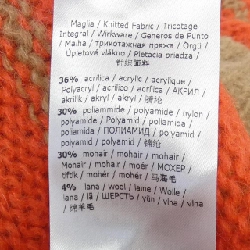 Maglia / Knitted Fabric / Tricotage
Integral / Wirkware / Generos de Punto
Malha / трикотажная пряжа / Örgü /
Úpletové vlákno / Pletacia priadza /
针织面料
36% acrilica / acrylic / acrylique /
Polyacryl / acrílico / acrílico / АКРИЛ /
akrilik / akryl / akryl /
30% poliammide / polyamide / nylon /
polyamide / Polyamid / poliamida /
poliamida / ПОЛИАМИД / polyamid /
polyamid / polyamid / 锦纶
30% mohair / mohair / mohair /
Mohair / mohair / moér / МОХЕР /
tiftik / mohér / mohér / 马海毛
4% lana / wool / laine / Wolle /
lana / lã / ШЕРСТЬ / yün / vlna / vlna
/ 绵羊毛